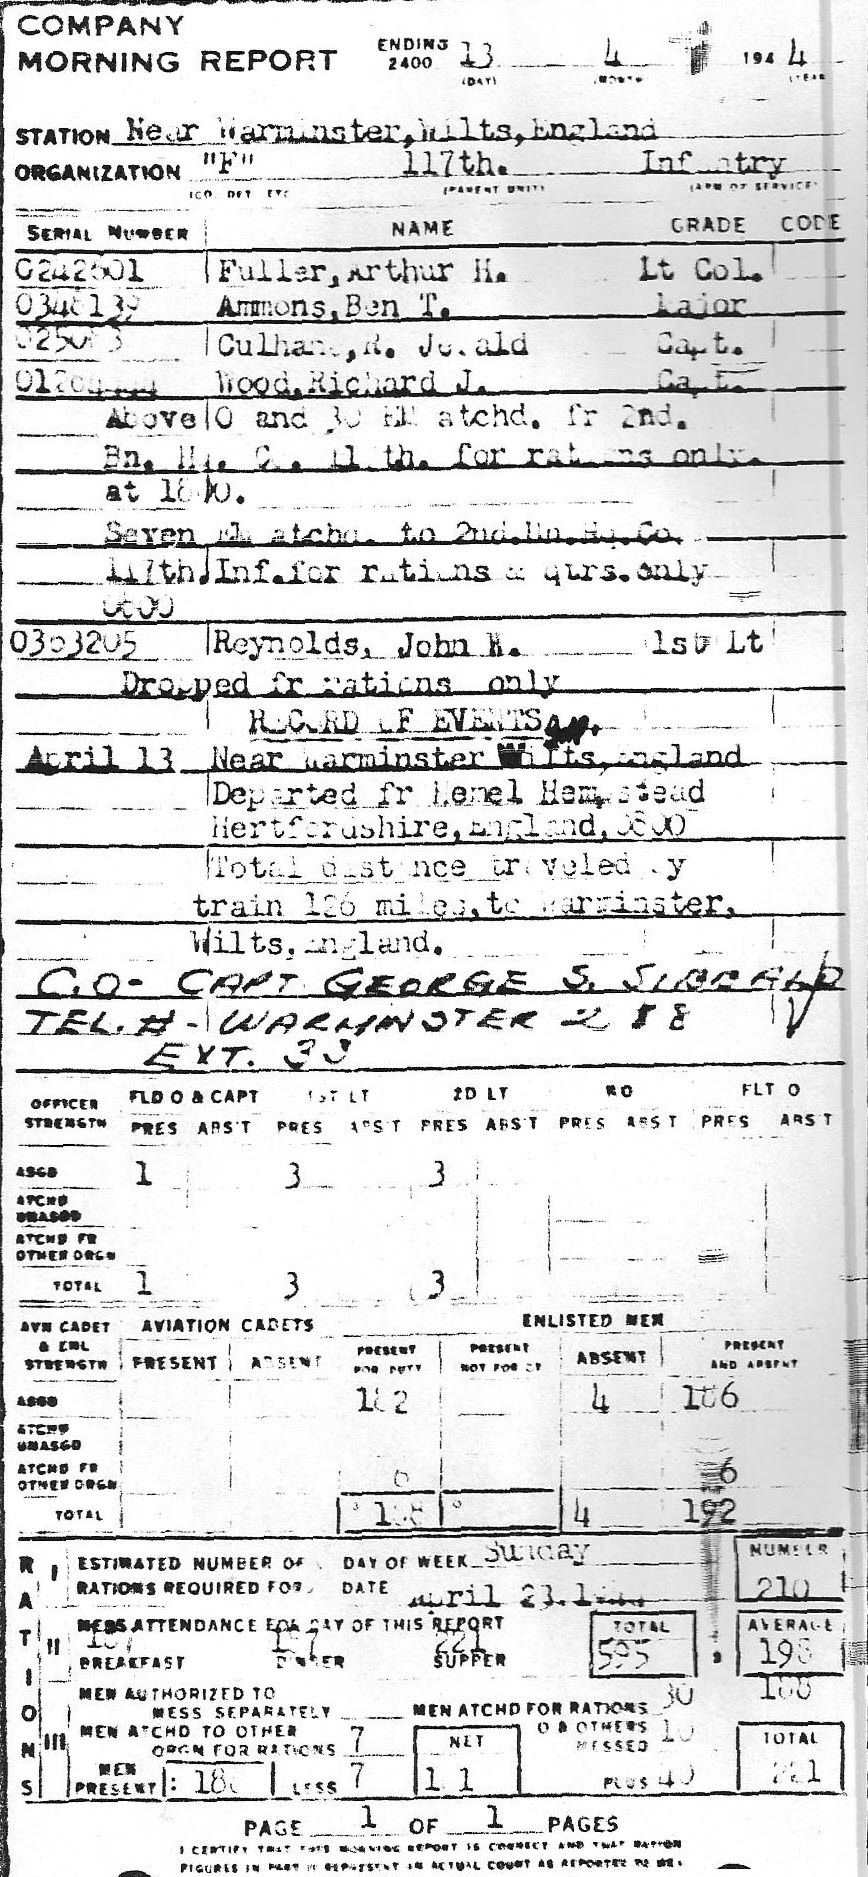 COMPANY
MORNING REPORT ENDING 2400 13 4 1944
(DAY) (MONTH) (YEAR)
STATION Near Warminster, Wilts, England
ORGANIZATION "F" 117th. Infantry
(CO. DET. ETC (PARENT UNIT) (ARM OF SERVICE)
SERIAL NUMBER NAME GRADE CODE
Fuller, Arthur H. Lt Col.
Ammons, Ben T. Major
Culhane, R. Capt.
Wood, Richard J. Capt.
Above O and 30 EM atchd. fr 2nd.
Bn. Hq. Co. 117th. for rations only.
at 1800.
Seven EM atchd. to 2nd.Bn.Hq.Co.
117th.Inf.for rations & qtrs.only
0600
0363205 Reynolds, John W. 1st Lt
Dropped fr rations only
RECORD OF EVENTS
April 13 Near Warminster Wilts, England
Departed fr Hemel Hempstead
Hertfordshire, England, 0800
Total distance traveled by
train 126 miles, to Warminster,
Wilts, England.
C.O- CAPT. GEORGE S. SIBBALD
TEL.#- WARMINSTER 288
EXT. 33
OFFICER STRENGTH FLD O & CAPT 1ST LT 2D LT WO FLT O
PRES ABS'T PRES ABS'T PRES ABS'T PRES ABS'T PRES ABS'T
ASGD 1 3 3
ATCHD UNASGD
ATCHD FR OTHER ORGN
TOTAL 1 3 3
AVN CADET & ENL STRENGTH AVIATION CADETS ENLISTED MEN
PRESENT ABSENT PRESENT FOR DUTY PRESENT NOT FOR DY ABSENT PRESENT AND ABSENT
ASGD 182 4 186
ATCHD UNASGD
ATCHD FR OTHER ORGN 6 6
TOTAL 188 4 192
RATIONS
I ESTIMATED NUMBER OF DAY OF WEEK Sunday NUMBER
RATIONS REQUIRED FOR DATE April 23. 1944 210
II MESS ATTENDANCE FOR DAY OF THIS REPORT TOTAL AVERAGE
187 187 221 595 198
BREAKFAST DINNER SUPPER
III MEN AUTHORIZED TO MESS SEPARATELY MEN ATCHD FOR RATIONS 30 188
MEN ATCHD TO OTHER ORGN FOR RATIONS 7 NET O & OTHERS MESSED 10 TOTAL
MEN PRESENT 188 LESS 7 181 PLUS 40 221
PAGE 1 OF 1 PAGES
I CERTIFY THAT THIS MORNING REPORT IS CORRECT AND THAT RATION
FIGURES IN PART II REPRESENT AN ACTUAL COUNT AS REPORTED TO ME.